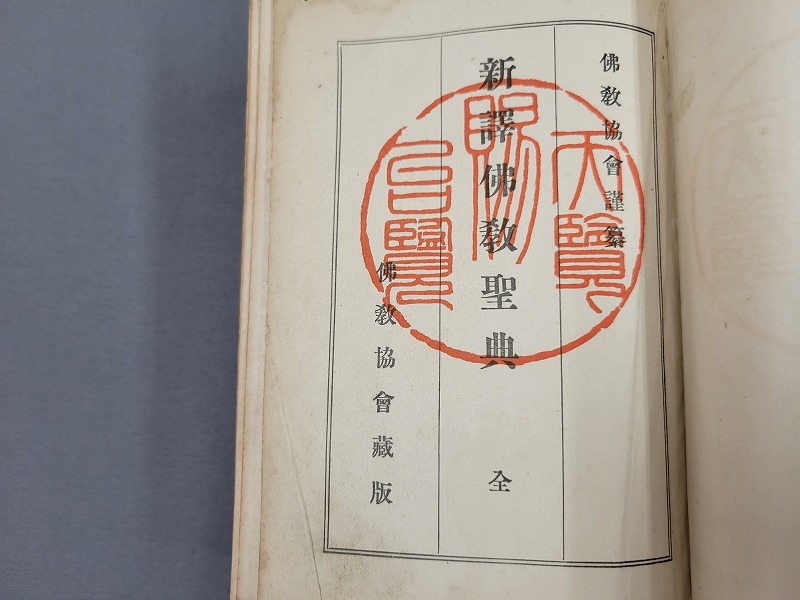 佛教協會謹纂
新譯佛教聖典 全
佛教協會藏版
天覽
賜
台覽